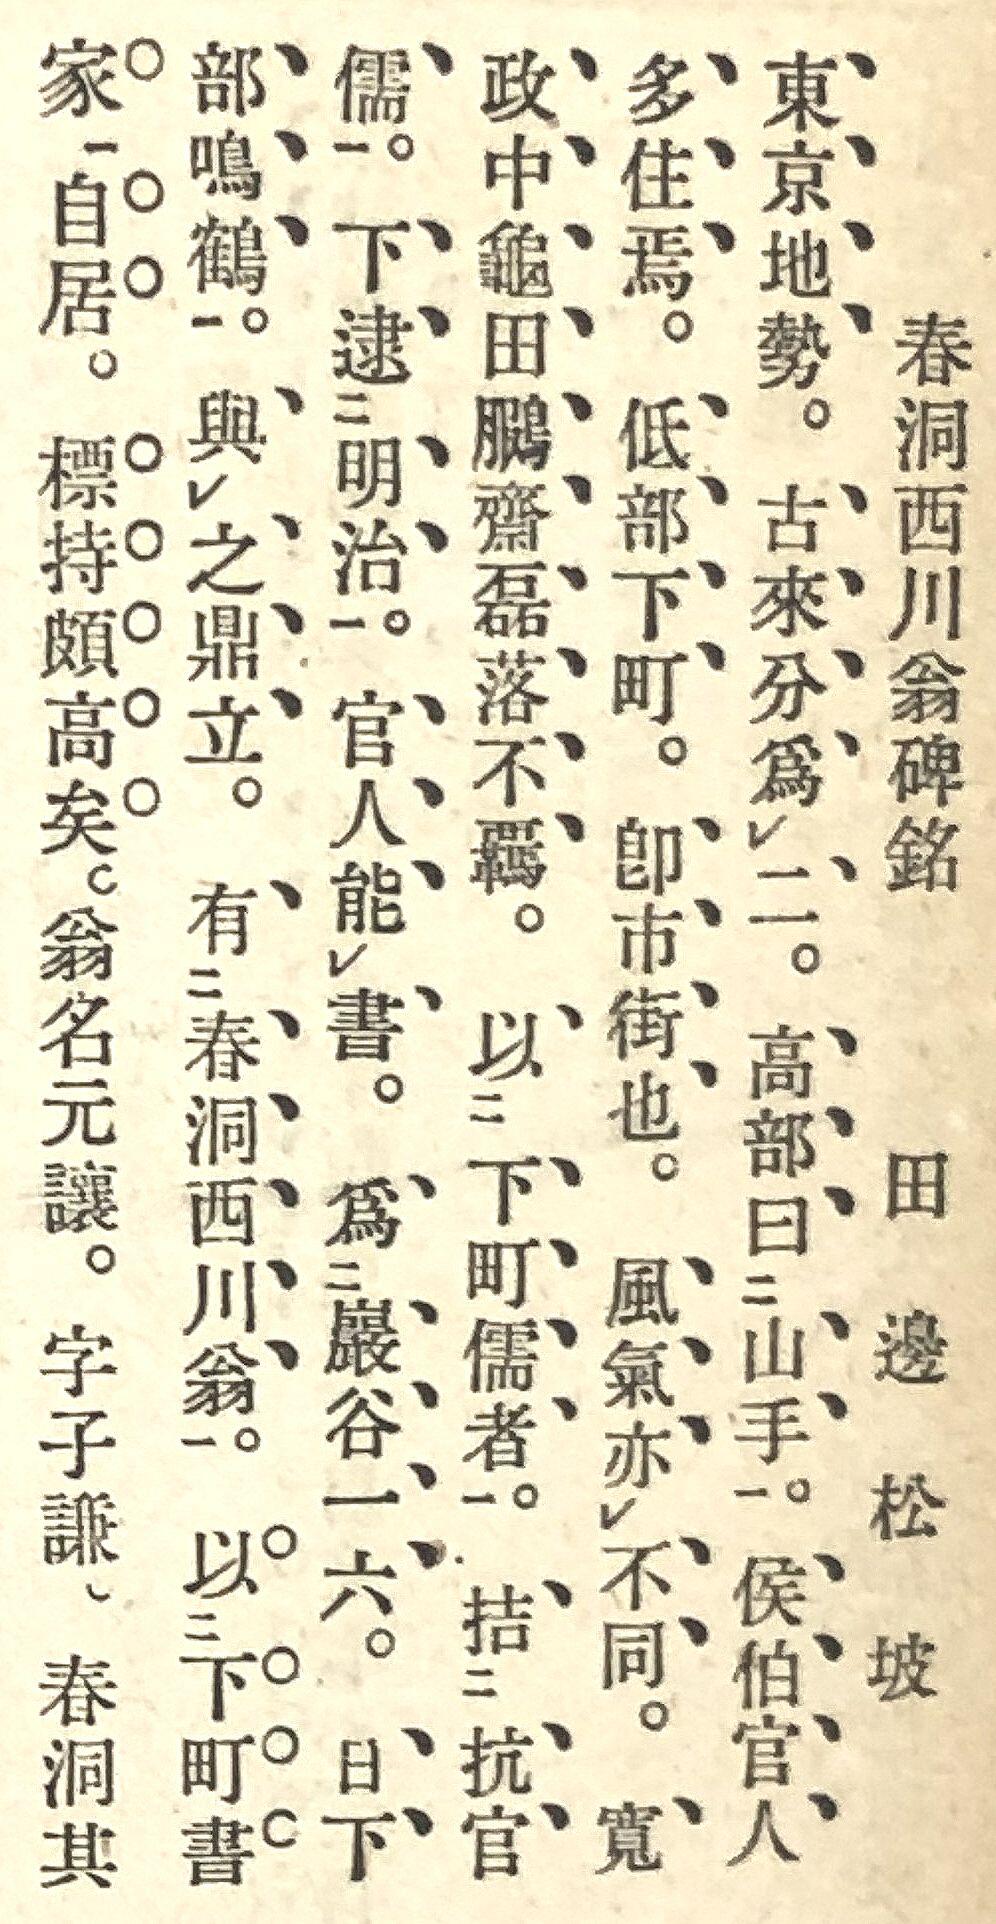 春洞西川翁碑銘　田邊松坡
東京地勢。古來分爲㆑二。高部曰㆓山手㆒。侯伯官人
多住焉。低部下町。卽市街也。風氣亦㆑不同。寬
政中龜田鵬齋磊落不羈。以㆓下町儒者㆒。拮㆓抗官
儒㆒。下逮㆓明治㆒。官人能㆑書。爲㆓巖谷一六。日下
部鳴鶴㆒。與㆑之鼎立。有㆓春洞西川翁㆒。以㆔下町書
家㆒自居。標持頗高矣。翁名元讓。字子謙、春洞其